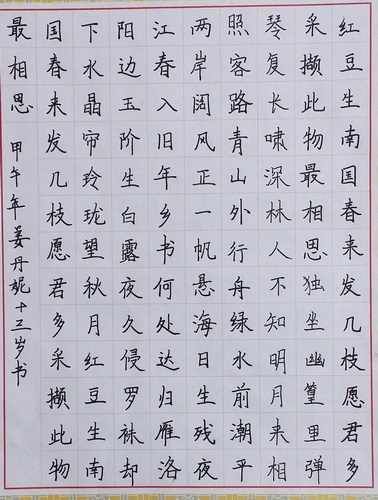 红豆生南国春来发几枝愿君多
采撷此物最相思独坐幽篁里弹
琴复长啸深林人不知明月来相
照客路青山外行舟绿水前潮平
两岸阔风正一帆悬海日生残夜
江春入旧年乡书何处达归雁洛
阳边玉阶生白露夜久侵罗袜却
下水晶帘玲珑望秋月红豆生南
国春来发几枝愿君多采撷此物
最相思 甲午年姜丹妮十三岁书